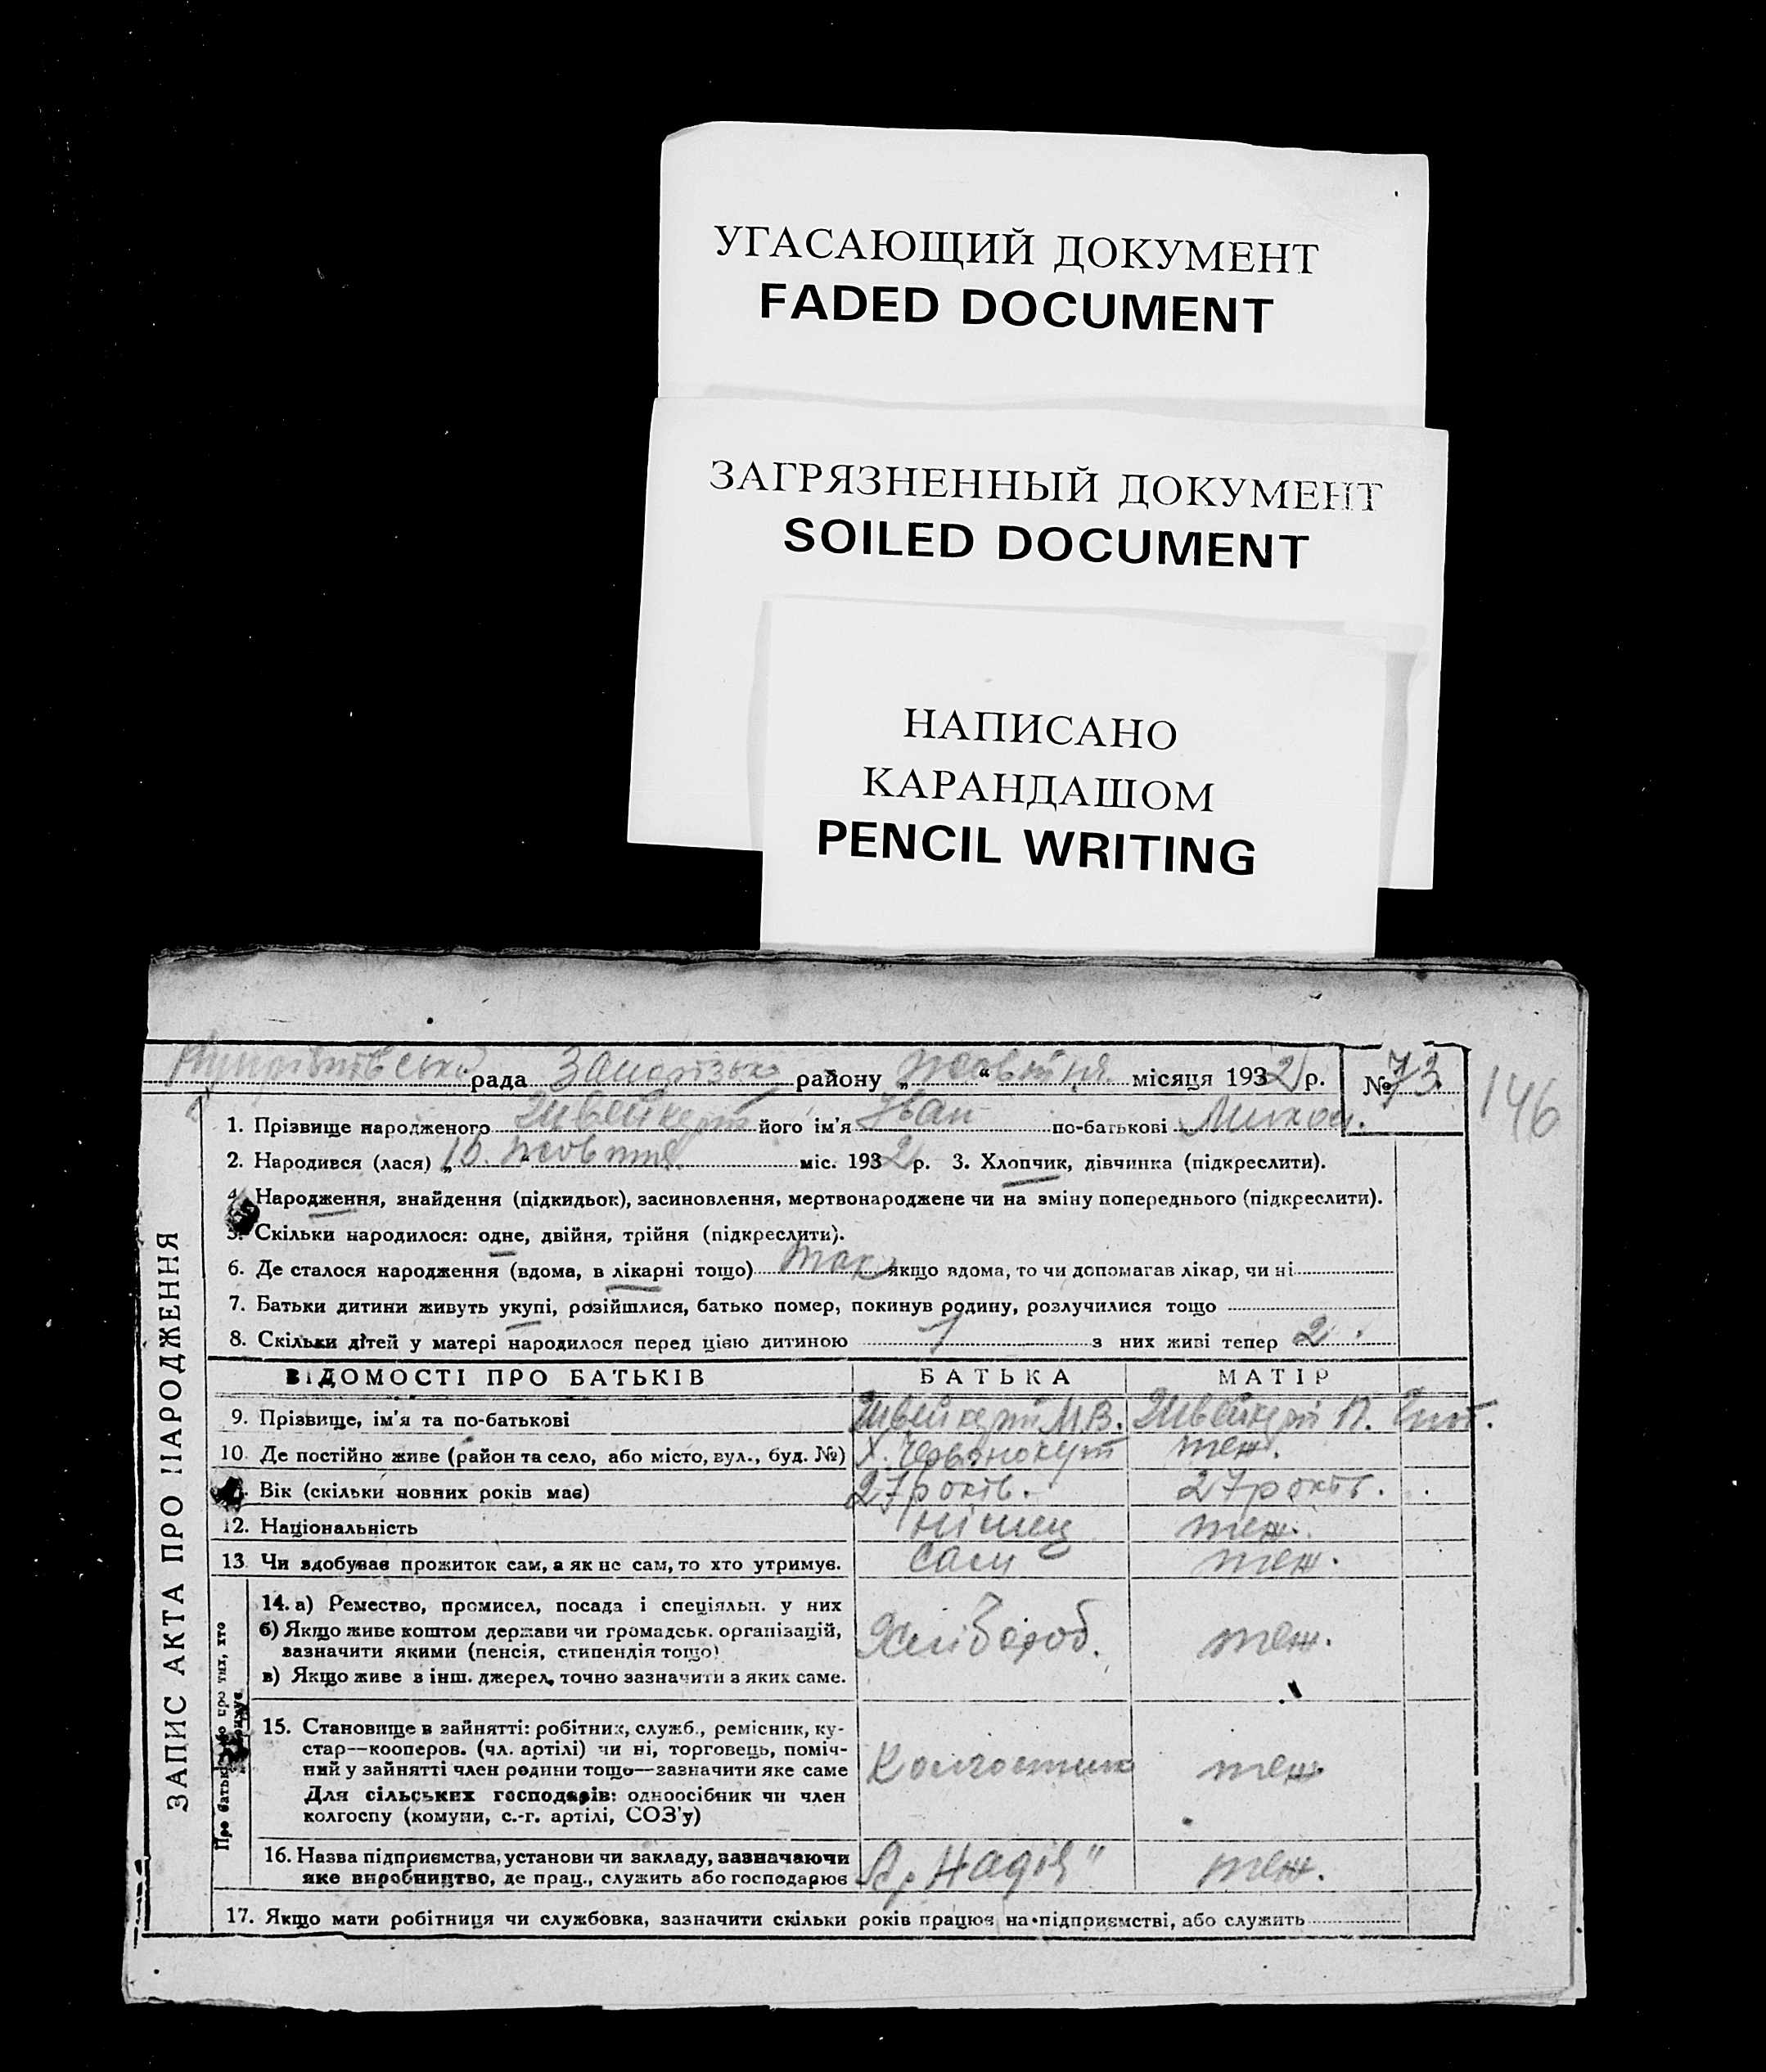 УГАСАЮЩИЙ ДОКУМЕНТ
FADED DOCUMENT
ЗАГРЯЗНЕННЫЙ ДОКУМЕНТ
SOILED DOCUMENT
НАПИСАНО
КАРАНДАШОМ
PENCIL WRITING
рада Запорізько району „ “ жовтня місяця 1932 р. № 73
146
ЗАПИС АКТА ПРО НАРОДЖЕННЯ
1. Прізвище народженого Швейкерт його ім'я Іван по-батькові Михой.
2. Народився (лася) „10. “ жовтня міс. 1932 р. 3. Хлопчик, дівчинка (підкреслити).
4. Народження, знайдення (підкидьок), засиновлення, мертвонароджене чи на зміну попереднього (підкреслити).
5. Скільки народилося: одне, двійня, трійня (підкреслити).
6. Де сталося народження (вдома, в лікарні тощо) так якщо вдома, то чи допомагав лікар, чи ні
7. Батьки дитини живуть укупі, розійшлися, батько помер, покинув родину, розлучилися тощо
8. Скільки дітей у матері народилося перед цією дитиною 1 з них живі тепер 2.
ВІДОМОСТІ ПРО БАТЬКІВ БАТЬКА МАТІР
9. Прізвище, ім'я та по-батькові Швейкерт М.В. Швейкерт П.
10. Де постійно живе (район та село, або місто, вул., буд. №) х. Червонокут теж.
Вік (скільки повних років має) 27 років. 27 років.
12. Національність німец теж.
13. Чи здобував прожиток сам, а як не сам, то хто утримує. сам теж.
Про батьків або про тих, хто
14. а) Ремество, промисел, посада і спеціяльн. у них
б) Якщо живе коштом держави чи громадськ. організацій,
зазначити якими (пенсія, стипендія тощо)
в) Якщо живе з інш. джерел, точно зазначити з яких саме.
Хлібороб. теж.
15. Становище в зайнятті: робітник, служб., ремісник, ку-
стар—кооперов. (чл. артілі) чи ні, торговець, поміч-
ний у зайнятті член родини тощо—зазначити яке саме
Для сільських господарів: одноосібник чи член
колгоспу (комуни, с.-г. артілі, СОЗ'у)
Колгоспник теж
16. Назва підприємства, установи чи закладу, зазначаючи
яке виробництво, де прац., служить або господарює
Ар „Надія" теж.
17. Якщо мати робітниця чи службовка, зазначити скільки років працює на підприємстві, або служить